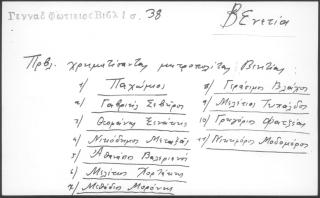 Γενναδ Φωτιειος Βιβλ 1 σ. 38
Βενετία
Πρβλ. χρηματίσαντας μητροπολίτας Βενετίας:
1/ Παχώμιος
2/ Γαβριήλ Σεβῆρος
3/ Θεοφάνης Ξενάκης
4/ Νικόδημος Μεταξᾶς
5/ Ἀθανάσιος Βαλεριανός
6/ Μελέτιος Χορτάκης
7/ Μεθόδιος Μορώνης
8/ Γεράσιμος Βλάχος
9/ Μελέτιος Τυπάλδος
10/ Γρηγόριος Φατζέας
11/ Νικηφόρος Μόρμορης